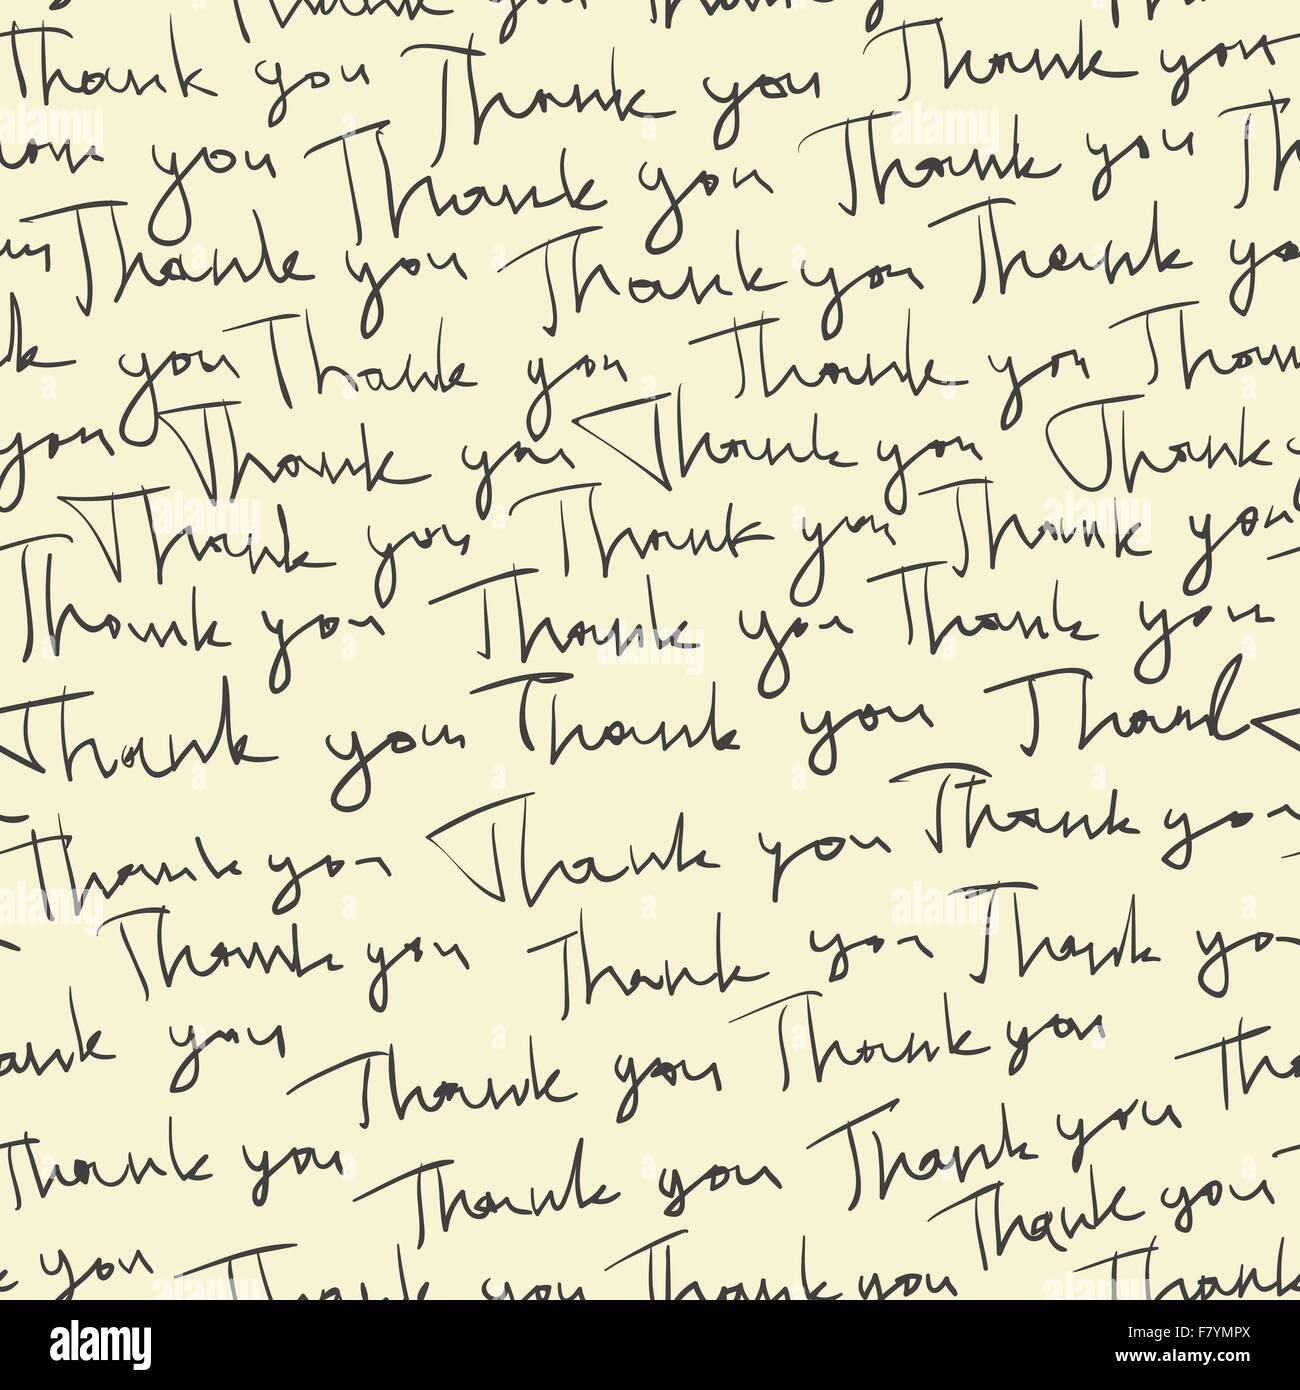 Thank you Thank you Thank you
you Thank you Thank you Th
Thank you Thank you Thank yo
k you Thank you Thank you Than
you Thank you Thank you Thank y
Thank you Thank you Thank you
Thank you Thank you Thank you
Thank you Thank you Thank
Thank you Thank you Thank yo
Thank you Thank you Thank yo
ank you Thank you Thank you Tha
Thank you Thank you Thank you
k you Thank you Thank you Thank you
Thank
alamy
Image ID: F7YMPX
www.alamy.com